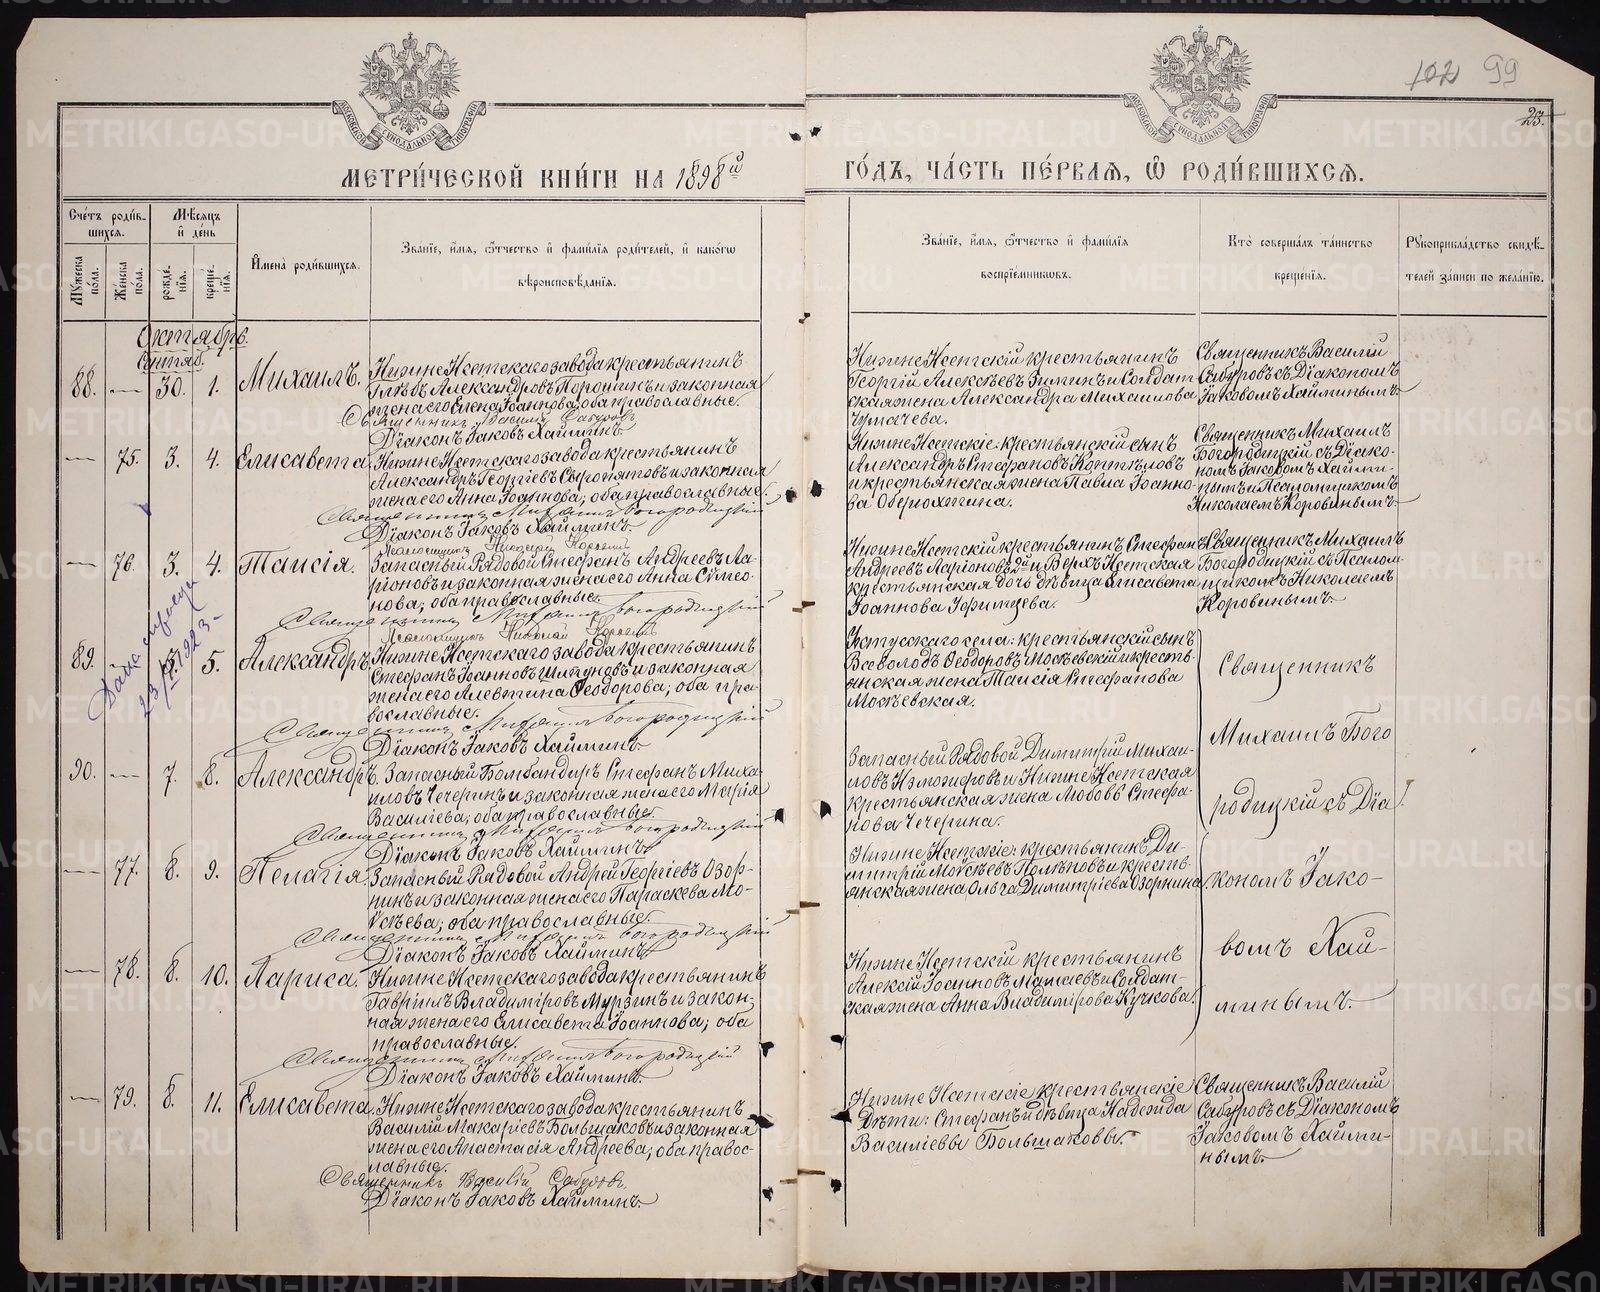 102 99
23.
МОСКОВСКОЙ СѴНОДАЛЬНОЙ ТИПОГРАФІИ
МОСКОВСКОЙ СѴНОДАЛЬНОЙ ТИПОГРАФІИ
МЕТРИ́ЧЕСКОЙ КНИ́ГИ НА 1898й
ГО́ДЪ, ЧА́СТЬ ПЕ́РВАЯ, Ѽ РОДИ́ВШИХСЯ.
Сче́тъ роди́в-
шихся.
Мѣ́сяцъ
и҆ де́нь
Мꙋ́жеска по́ла.
Же́нска по́ла.
рожде́нїя.
креще́нїя.
И҆мена̀ роди́вшихся.
Зва́нїе, и҆́мя, ѻ҆́тчество и҆ фами́лїя роди́телей, и҆ како́гѡ
вѣроисповѣ́данїя.
Зва́нїе, и҆́мя, ѻ҆́тчество и҆ фами́лїя
воспрїе́мникѡвъ.
Кто̀ соверша́лъ та́инство
креще́нїя.
Рꙋкоприкла́дство свидѣ́-
телей за́писи по жела́нїю.
Октябрь.
Сентяб.
88. — 30. 1. Михаилъ.
НижнеИсетскаго завода крестьянинъ
Глѣбъ Александровъ Порошинъ и законная
жена его Елена Іоаннова; оба православные.
Священникъ Василій Сабуровъ
Діаконъ Іаковъ Хайминъ.
НижнеИсетскій крестьянинъ
Георгій Алексѣевъ Зиминъ и Солдат-
ская жена Александра Михаилова
Чумачева.
Священникъ Василій
Сабуровъ съ Діакономъ
Іаковомъ Хайминымъ.
— 75. 3. 4. Елисавета.
НижнеИсетскаго завода крестьянинъ
Александръ Георгіевъ Сыропятовъ и законная
жена его Анна Іоаннова; оба православные.
Священникъ Михаилъ Богородицкій
Діаконъ Іаковъ Хайминъ.
Псаломщикъ Николай Коровинъ
НижнеИсетскіе: крестьянскій сынъ
Александръ Стефановъ Коптяловъ
и крестьянская жена Павла Іоанно-
ва Оберюхтина.
Священникъ Михаилъ
Богородицкій съ Діако-
номъ Іаковомъ Хайми-
нымъ и Псаломщикомъ
Николаемъ Коровинымъ.
— 76. 3. 4. Таисія.
Запасный Рядовой Стефанъ Андреевъ Ла-
ріоновъ и законная жена его Анна Сумео-
нова; оба православные.
Священникъ Михаилъ Богородицкій
Псаломщикъ Николай Коровинъ
НижнеИсетскій крестьянинъ Стефанъ
Андреевъ Ларіоновъ 2й и ВерхъИсетская
крестьянская дочь дѣвица Елисавета
Іоаннова Уфимцева.
Священникъ Михаилъ
Богородицкій съ Псалом-
щикомъ Николаемъ
Коровинымъ.
89. — 5. Александръ.
НижнеИсетскаго завода крестьянинъ
Стефанъ Іоанновъ Шипуновъ и законная
жена его Алевтина Ѳеодорова; оба пра-
вославные.
Священникъ Михаилъ Богородицкій
Діаконъ Іаковъ Хайминъ.
Уктусскаго села: крестьянскій сынъ
Всеволодъ Ѳеодоровъ Можевскій и кресть-
янская жена Таисія Стефанова
Можевская.
Священникъ
Михаилъ Бого
родицкій съ Діа
кономъ Іако-
вомъ Хай-
минымъ.
Дана справка
23/V 1923.
90. — 7. 8. Александръ.
Запасный Бомбандиръ Стефанъ Миха-
иловъ Чечеринъ и законная жена его Марія
Васильева; оба православные.
Священникъ Михаилъ Богородицкій
Діаконъ Іаковъ Хайминъ.
Запасный Рядовой Димитрій Михаи-
ловъ Изможеровъ и НижнеИсетская
крестьянская жена Любовь Стефа-
нова Чечерина.
— 77. 8. 9. Пелагія.
Запасный Рядовой Андрей Георгіевъ Озор-
нинъ и законная жена его Параскева Мо-
ѵсѣева; оба православные.
Священникъ Михаилъ Богородицкій
Діаконъ Іаковъ Хайминъ.
НижнеИсетскіе: крестьянинъ Ди-
митрій Моѵсѣевъ Полѣновъ и кресть-
янская жена Ольга Димитріева Озорнина.
— 78. 8. 10. Лариса.
НижнеИсетскаго завода крестьянинъ
Гавріилъ Владиміровъ Мурзинъ и закон-
ная жена его Елисавета Іоаннова; оба
православные.
Священникъ Михаилъ Богородицкій
Діаконъ Іаковъ Хайминъ.
НижнеИсетскій крестьянинъ
Алексій Іосифовъ Мамаевъ и Солдат-
ская жена Анна Владимірова Кучкова.
— 79. 8. 11. Елисавета.
НижнеИсетскаго завода крестьянинъ
Василій Макаріевъ Большаковъ и законная
жена его Анастасія Андреева; оба правос-
лавные.
Священникъ Василій Сабуровъ.
Діаконъ Іаковъ Хайминъ.
НижнеИсетскіе крестьянскіе
дѣти: Стефанъ и дѣвица Надежда
Василіевы Большаковы.
Священникъ Василій
Сабуровъ съ Діакономъ
Іаковомъ Хайми-
нымъ.
METRIKI.GASO-URAL.RU